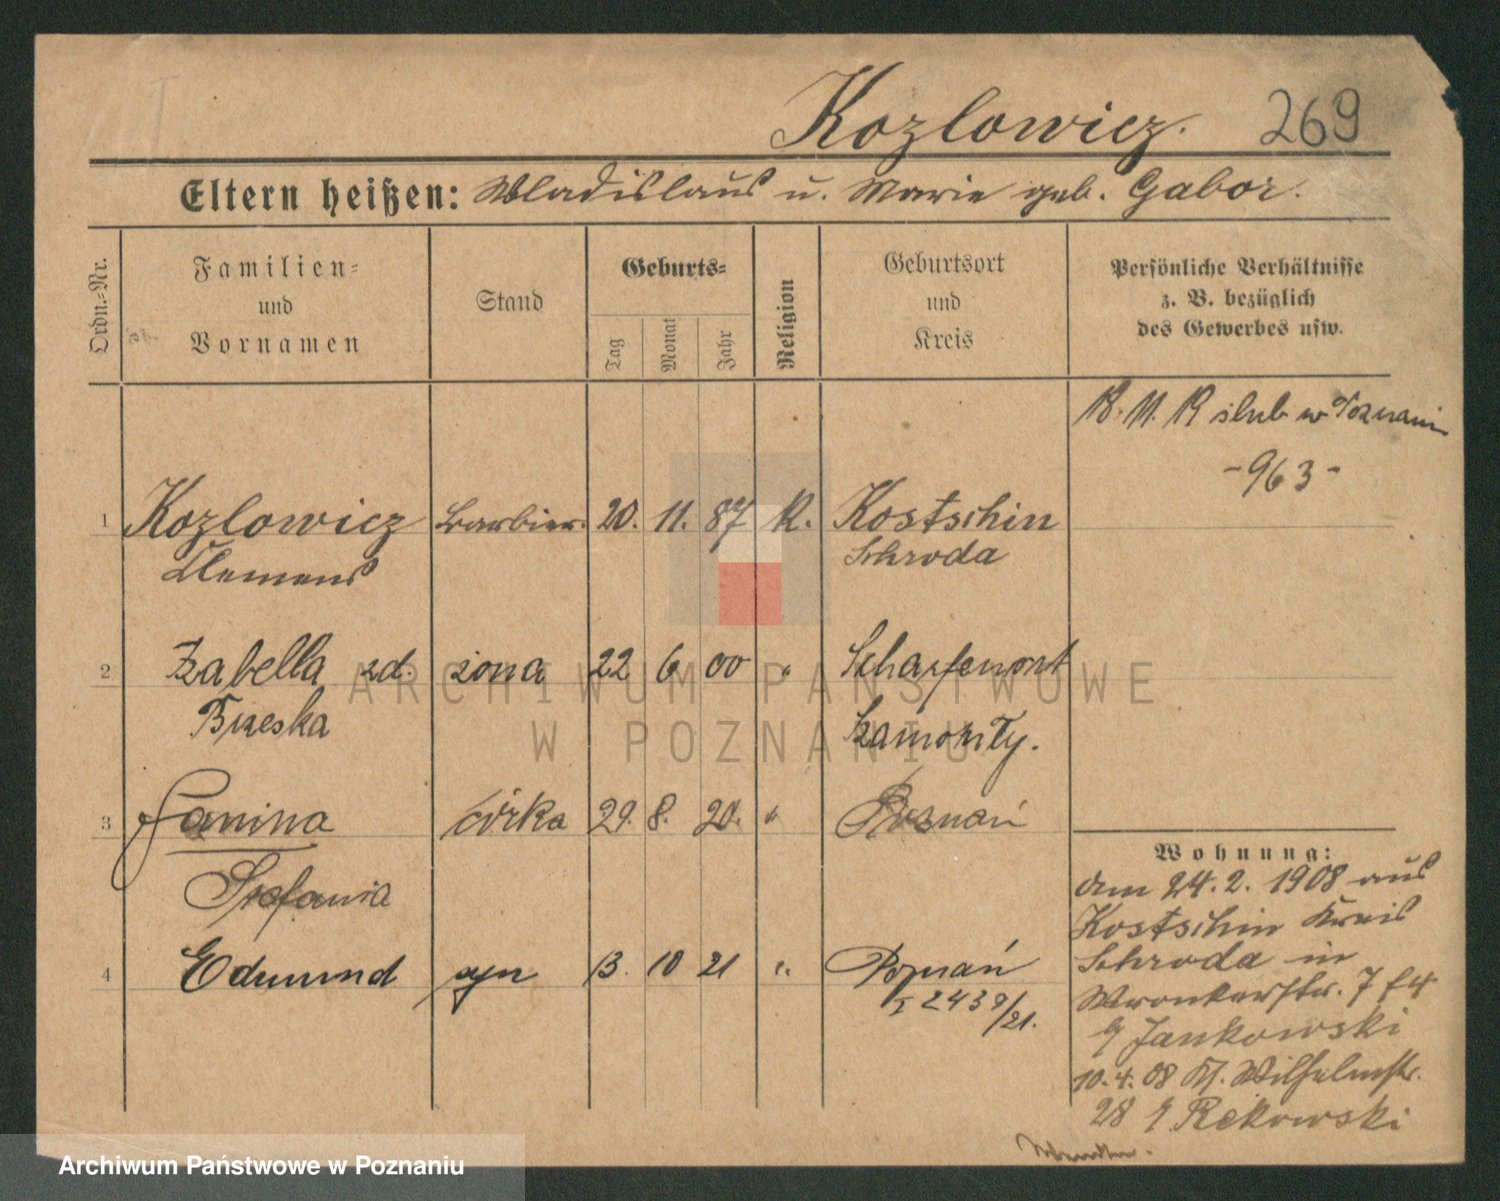 Kozlowicz. 269
Eltern heißen: Wladislaus u. Marie geb. Gabor.
Ordn.-Nr.
Familien-
und
Vornamen
Stand
Geburts-
Tag
Monat
Jahr
Religion
Geburtsort
und
Kreis
Persönliche Verhältnisse
z. B. bezüglich
des Gewerbes usw.
18. 11. 19 ślub w Poznaniu
-963-
1 Kozlowicz Barbier. 20. 11. 87 K. Kostschin
Clemens Schroda
2 Izabella zd. żona 22 6 00 " Scharfenort
Brzeska Szamotuły.
3 Janina córka 29. 8. 20. " Poznań
Stefania
4 Edmund syn 13. 10 21 " Poznań
I 2439/21.
Wohnung:
am 24. 2. 1908 aus
Kostschin Kreis
Schroda in
Wronkerstr. 7
Jankowski
10. 4. 08 Kl. Wilhelmstr.
28 Rekowski
ARCHIWUM PAŃSTWOWE
W POZNANIU
Archiwum Państwowe w Poznaniu